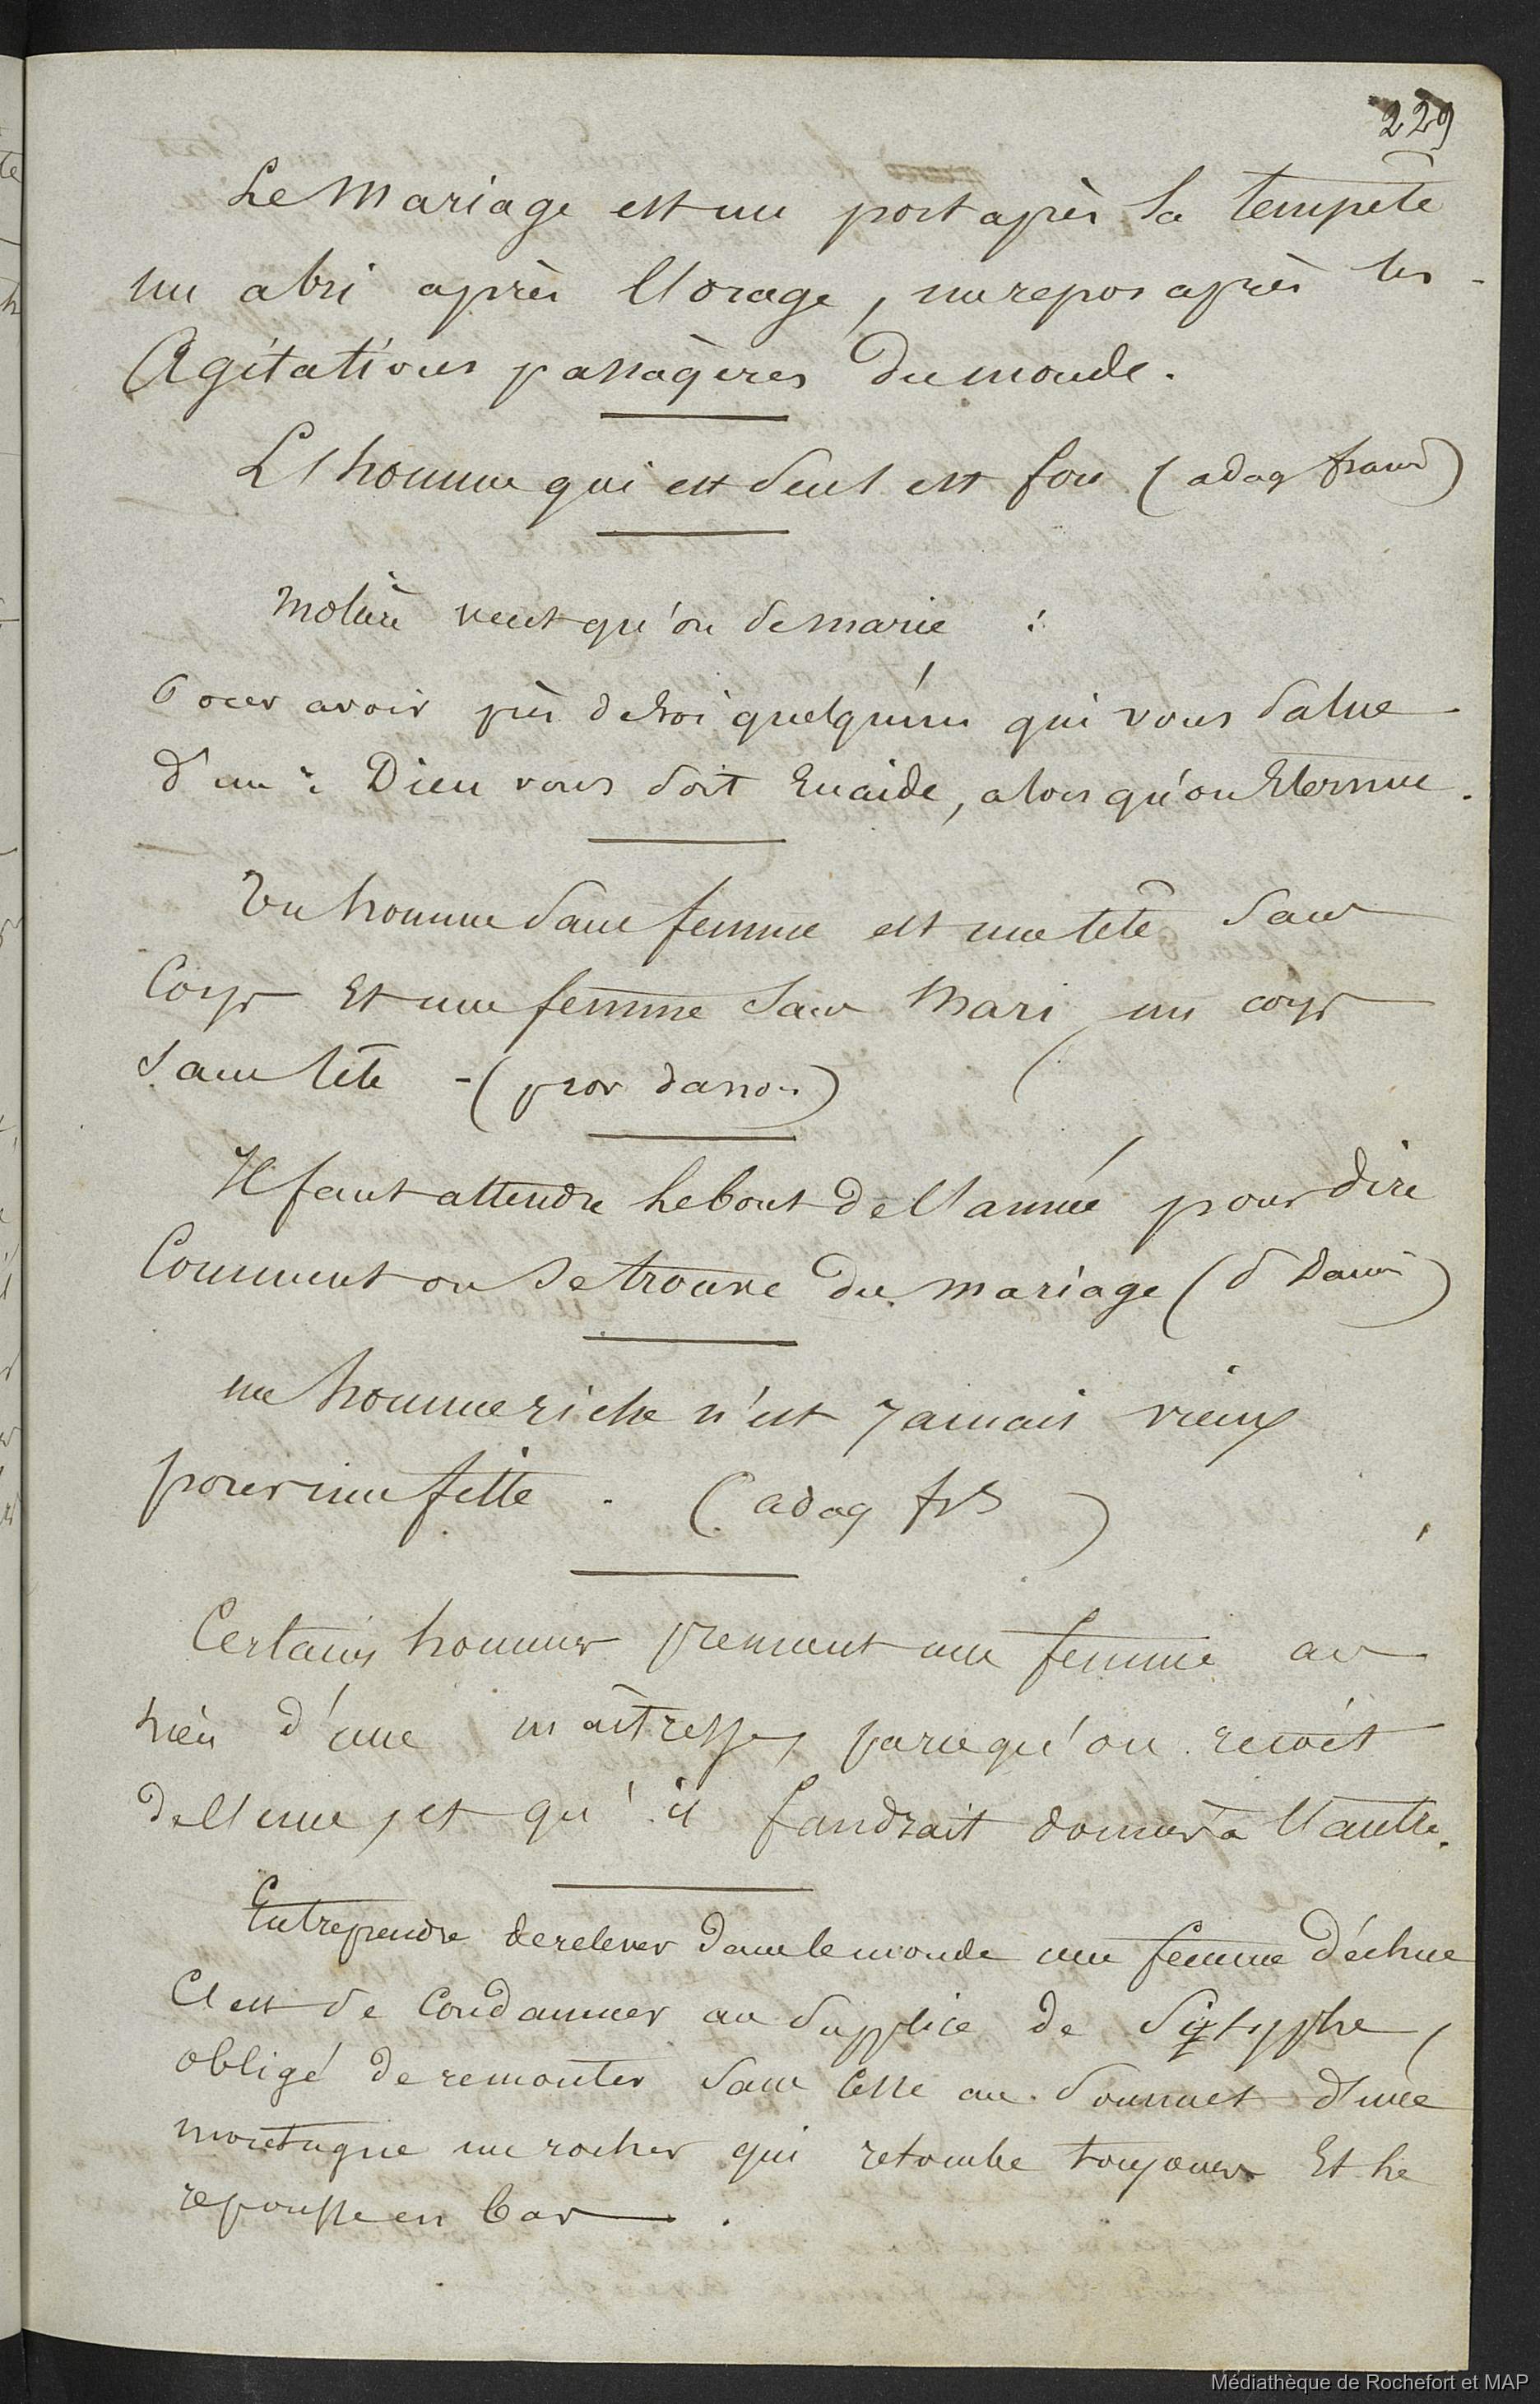 229
Le Mariage est un port après la tempête
un abri après l'orage, un repos après les
Agitations passagères du monde.
L'homme qui est seul est fou (adag franc)
Molière veut qu'on se marie :
Pour avoir près de soi quelqu'un qui vous salue
d'un : Dieu vous soit En aide, alors qu'on Eternue.
Un homme sans femme est une tête sans
Corps Et une femme sans Mari, un corps
sans tête - (prov danois)
Il faut attendre le bout de l'année pour dire
Comment on se trouve du mariage (d Danois)
un homme riche n'est jamais vieux
pour une fille. (adag frs)
Certains hommes prennent une femme au
lieu d'une maîtresse, parce qu'on reçoit
de l'une, et qu'il faudrait donner à l'autre.
Entreprendre de relever dans le monde une femme déchue
C'est se Condamner au supplice de Sisyphe,
obligé de remonter sans cesse au sommet d'une
montagne un rocher qui retombe toujours Et le
repousse en bas.
Médiathèque de Rochefort et MAP